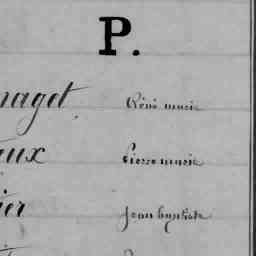 P.
naget René marie
aux Pierre marie
ier Jean baptiste